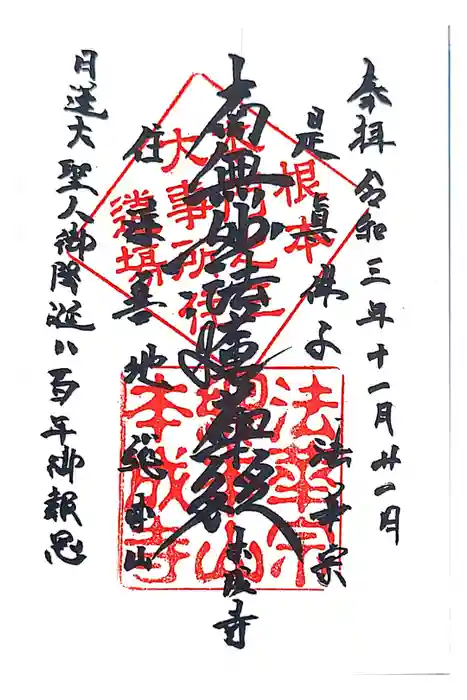 奉拝 令和三年十一月廿一日
是眞佛子 法華宗
南無妙法蓮華経 本成寺
住淳善地 総本山
日蓮大聖人御降誕八百年御報恩
根本
大事所在
道場
法華宗
總本山
本成寺